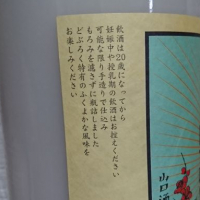 飲酒は20歳になってから
妊娠中や授乳期の飲酒はお控えください
可能な限り手造りで仕込み
もろみを濾さずに瓶詰しました
どぶろく特有のふくよかな風味を
お楽しみください
山口酒